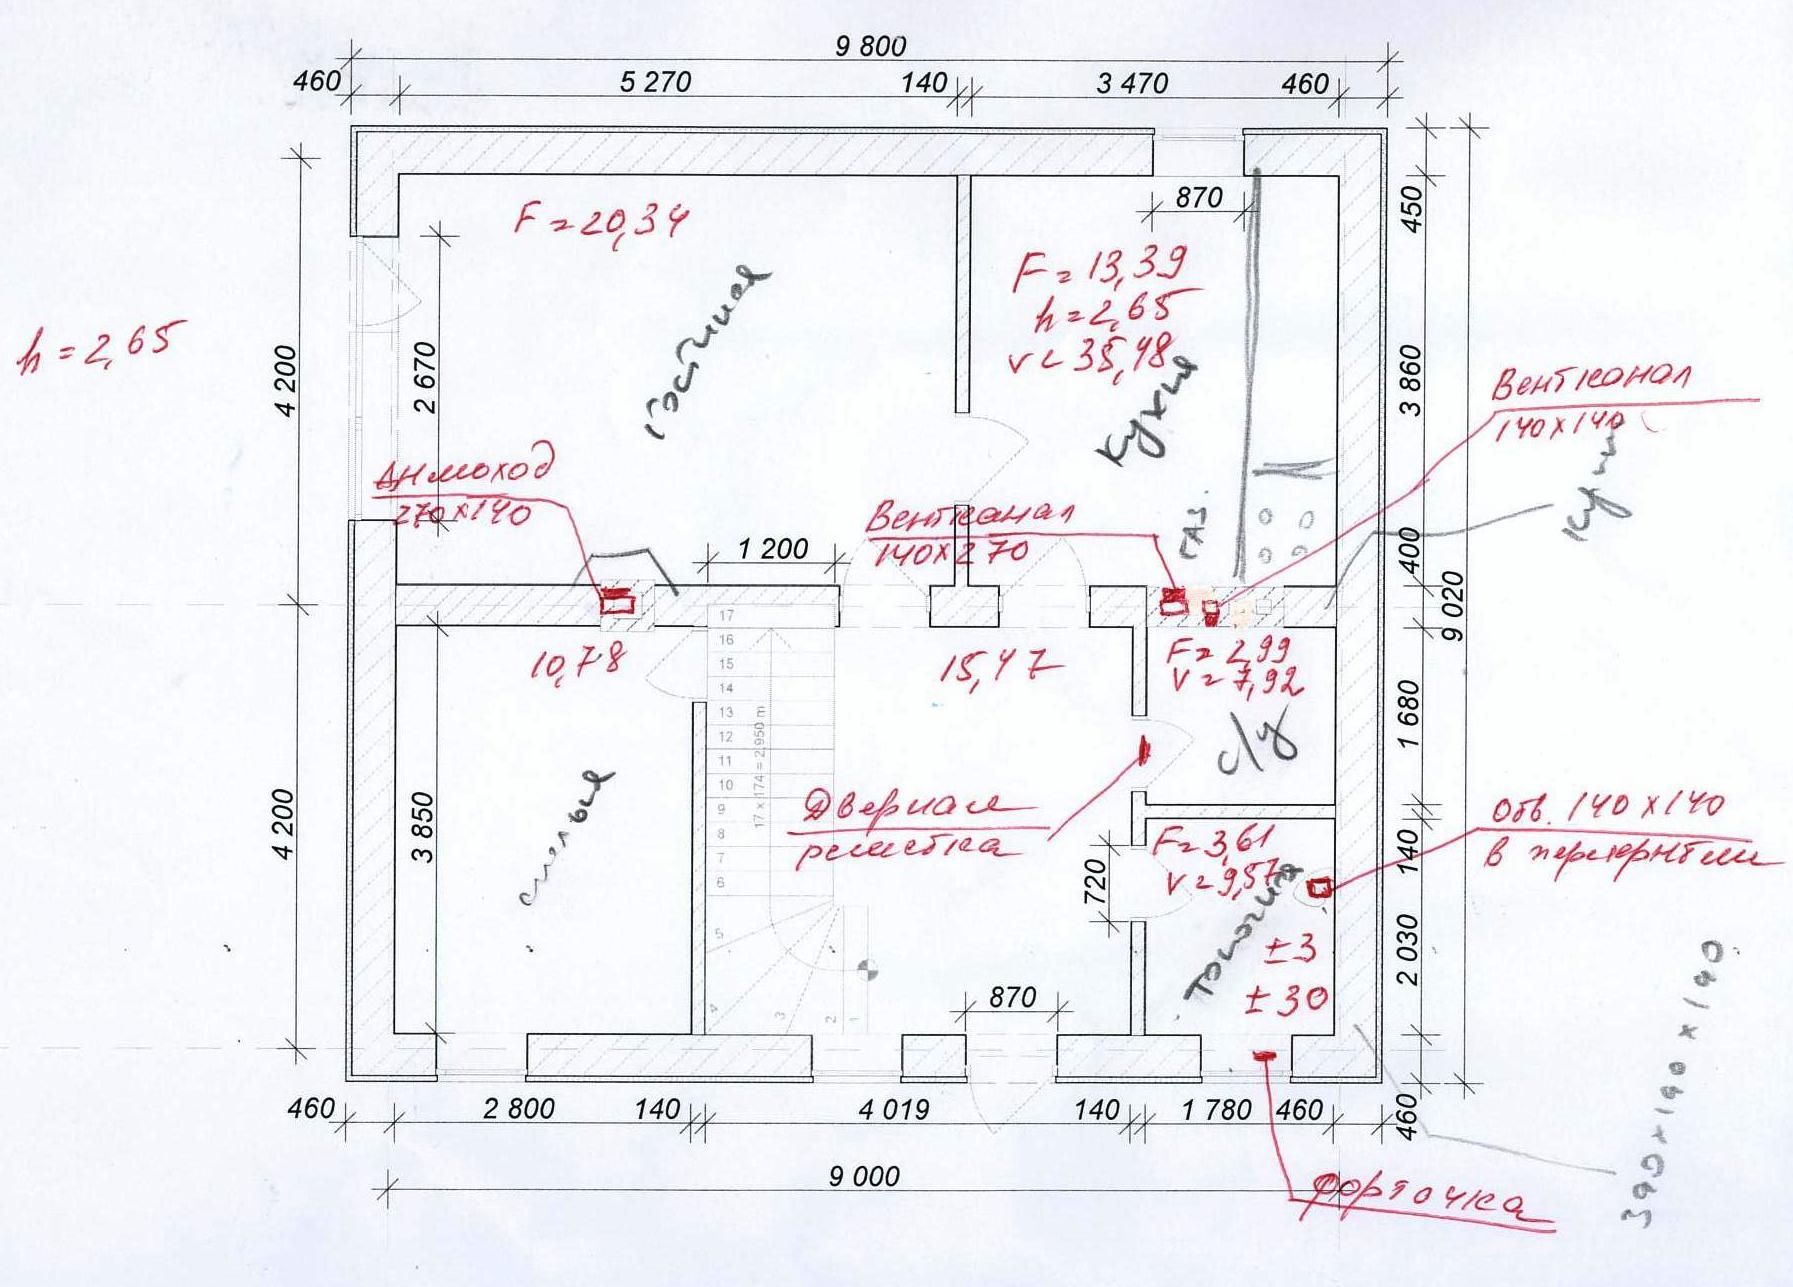 9 800
460 5 270 140 3 470 460
870
450
F = 20,34
F = 13,39
h = 2,65
V = 35,48
Гостиная
Кухня
h = 2,65
4 200
2 670
3 860
Вентканал
140х140
Кухни
Дымоход
270х140
Вентканал
140х270
ГАЗ.
1 200
400
9 020
17
16
15
14
13
12
11
10
9
8
7
6
5
4
3
2
1
17 x 174 = 2,950 m
10,78
15,47
F = 2,99
V = 7,92
с/у
1 680
4 200
3 850
спальня
Дверная
решетка
720
F = 3,61
V = 9,57
Топочная
±3
±30
Отв. 140 х 140
в перекрытии
140
2 030
870
460 2 800 140 4 019 140 1 780 460
460
9 000
форточка
390х190х190